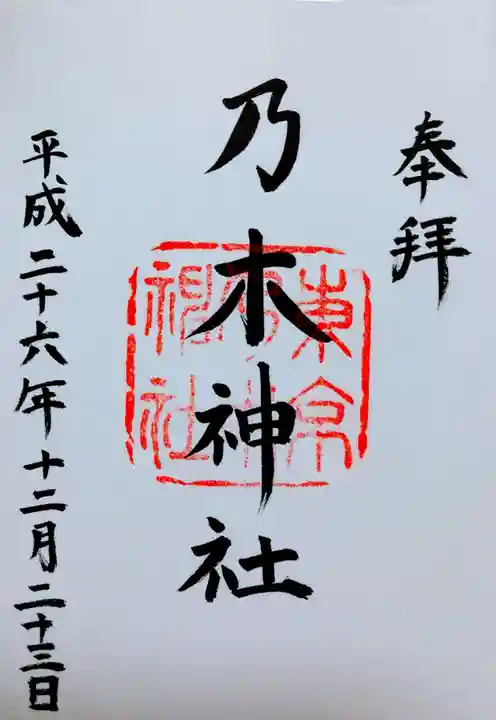 奉拝
乃木神社
東京
神社
平成二十六年十二月二十三日